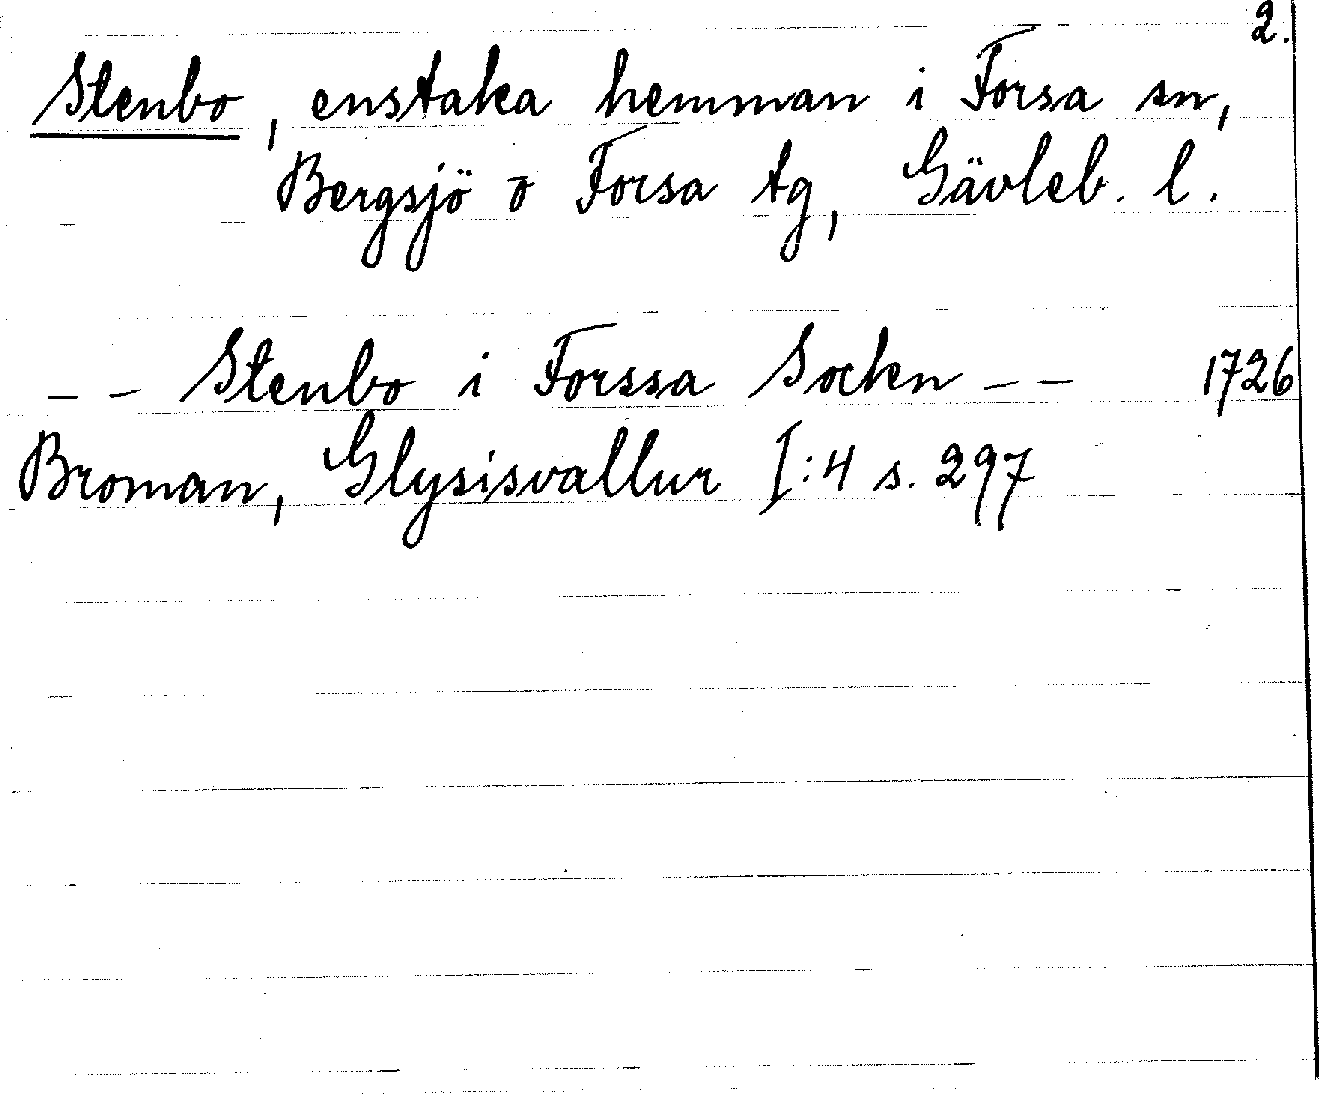 2.
Stenbo, enstaka hemman i Forsa sn,
Bergsjö o Forsa tg, Gävleb. l.
– – Stenbo i Forssa Socken – – 1726
Broman, Glysisvallur I:4 s. 297